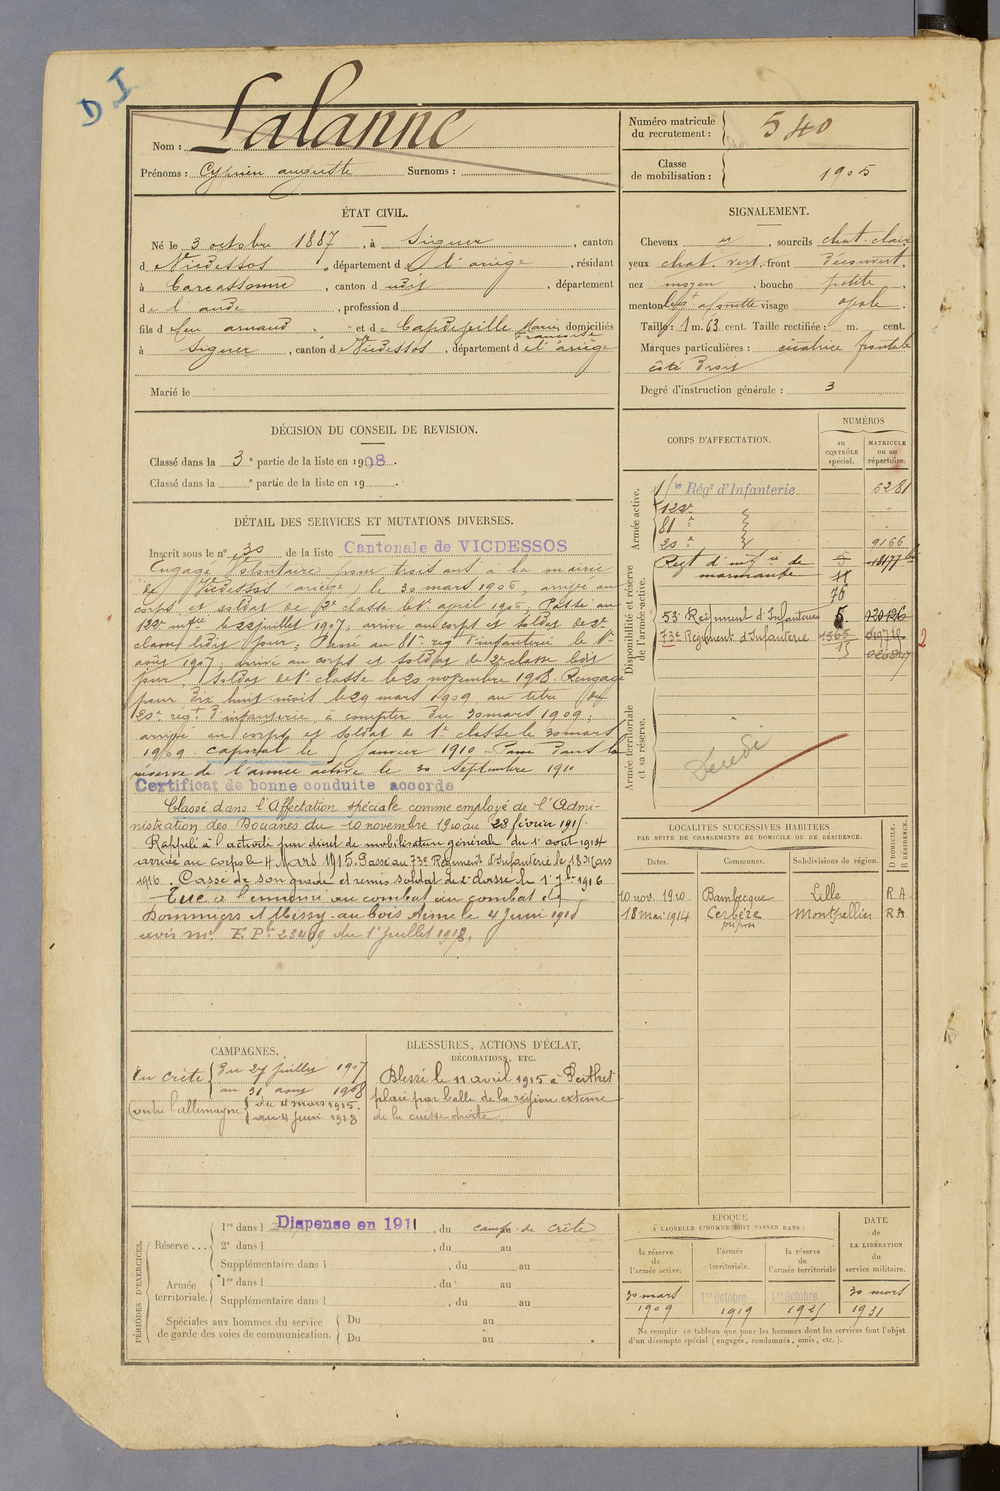 D I
Nom : Lalanne
Prénoms : Cyprien auguste Surnoms :
Numéro matricule
du recrutement : 540
Classe
de mobilisation : 1905
ÉTAT CIVIL.
Né le 3 octobre 1887, à Siguer, canton
d Vicdessos, département d l'ariège, résidant
à Carcassonne, canton d udit, département
d e l'aude, profession d
fils d feu arnaud et d e Capdeville Marie Françoise domiciliés
à Siguer, canton d Vicdessos, département d e l'ariège
Marié le
SIGNALEMENT.
Cheveux et, sourcils chat. clair
yeux chat. vert. front découvert.
nez moyen, bouche petite
menton visage ovale.
Taille : 1 m. 63 cent. Taille rectifiée : m. cent.
Marques particulières : cicatrice frontale
côté droit
Degré d'instruction générale : 3
DÉCISION DU CONSEIL DE REVISION.
Classé dans la 3e partie de la liste en 1908.
Classé dans la e partie de la liste en 19 .
DÉTAIL DES SERVICES ET MUTATIONS DIVERSES.
Inscrit sous le n° 30 de la liste Cantonale de VICDESSOS
Engagé Volontaire pour trois ans à la mairie
de Vicdessos ariège, le 30 mars 1906, arrivé au
corps et soldat de 2e classe le 1er avril 1906; Passé au
122e infie le 22 juillet 1907, arrivé au corps et soldat de 2e
classe ledit jour; Passé au 81e régt d'infanterie le 1er
août 1907, arrivé au corps et soldat de 2e classe ledit
jour. Soldat de 1e classe le 20 novembre 1908. Rengagé
pour dix huit mois le 29 mars 1909 au titre du
20e régt d'infanterie, à compter du 30 mars 1909;
arrivé au corps et soldat de 1e classe le 30 mars
1909. caporal le janvier 1910. Passé dans la
réserve de l'armée active le 30 Septembre 1910
Certificat de bonne conduite accordé
Classé dans l'Affectation spéciale comme employé de l'Admi-
nistration des Douanes du 10 novembre 1910 au 28 février 1915.
Rappelé à l'activité par décret de mobilisation générale du 1er août 1914
arrivé au corps le 4 Mars 1915. Passé au 73e Régiment d'Infanterie le 18 Mars
1916. Cassé de son grade et remis soldat de 2e classe le 1er 7bre 1916
Tué à l'ennemi au combat au combat de
Dommiers et Missy-au bois Aisne le 4 Juin 1918
avis ml F.Pr 23469 du 1er juillet 1918.
CORPS D'AFFECTATION.
NUMÉROS
au CONTRÔLE spécial.
MATRICULE ou au répertoire.
Armée active.
11e Régt d'Infanterie 6281
122e
81e
20e 9166
Disponibilité et réserve de l'armée-active.
Regt d'infie de
marmande 5
76
53e Régiment d'Infanterie
73e Régiment d'Infanterie 1565
15
2
Armée territoriale et sa réserve.
Décédé
LOCALITÉS SUCCESSIVES HABITÉES
PAR SUITE DE CHANGEMENTS DE DOMICILE OU DE RÉSIDENCE.
Dates. Communes. Subdivisions de région. D DOMICILE. R RÉSIDENCE.
10 nov. 1910 Bambecque Lille R A
18 mai 1914 Cerbère Montpellier R A
CAMPAGNES.
En crète du 27 juillet 1907
au 31 aout 1908
Contre l'allemagne du 4 mars 1915
au 4 juin 1918
BLESSURES, ACTIONS D'ÉCLAT,
DÉCORATIONS, ETC.
Blessé le 11 avril 1915 à Perthes
plaie par balle de la région externe
de la cuisse droite
PÉRIODES D'EXERCICES.
Réserve ... 1re dans l Dispensé en 1911, du campe de crète
2e dans l , du au
Supplémentaire dans l , du au
Armée territoriale. 1re dans l , du au
Supplémentaire dans l , du au
Spéciales aux hommes du service
de garde des voies de communication. Du au
Du au
EPOQUE
À LAQUELLE L'HOMME DOIT PASSER DANS :
la réserve de l'armée active. l'armée territoriale. la réserve de l'armée territoriale
DATE de LA LIBÉRATION du service militaire.
30 mars 1er Octobre 1er Octobre 30 mars
1909 1919 1925 1931
Ne remplir ce tableau que pour les hommes dont les services font l'objet
d'un décompte spécial (engagés, condamnés, omis, etc.).